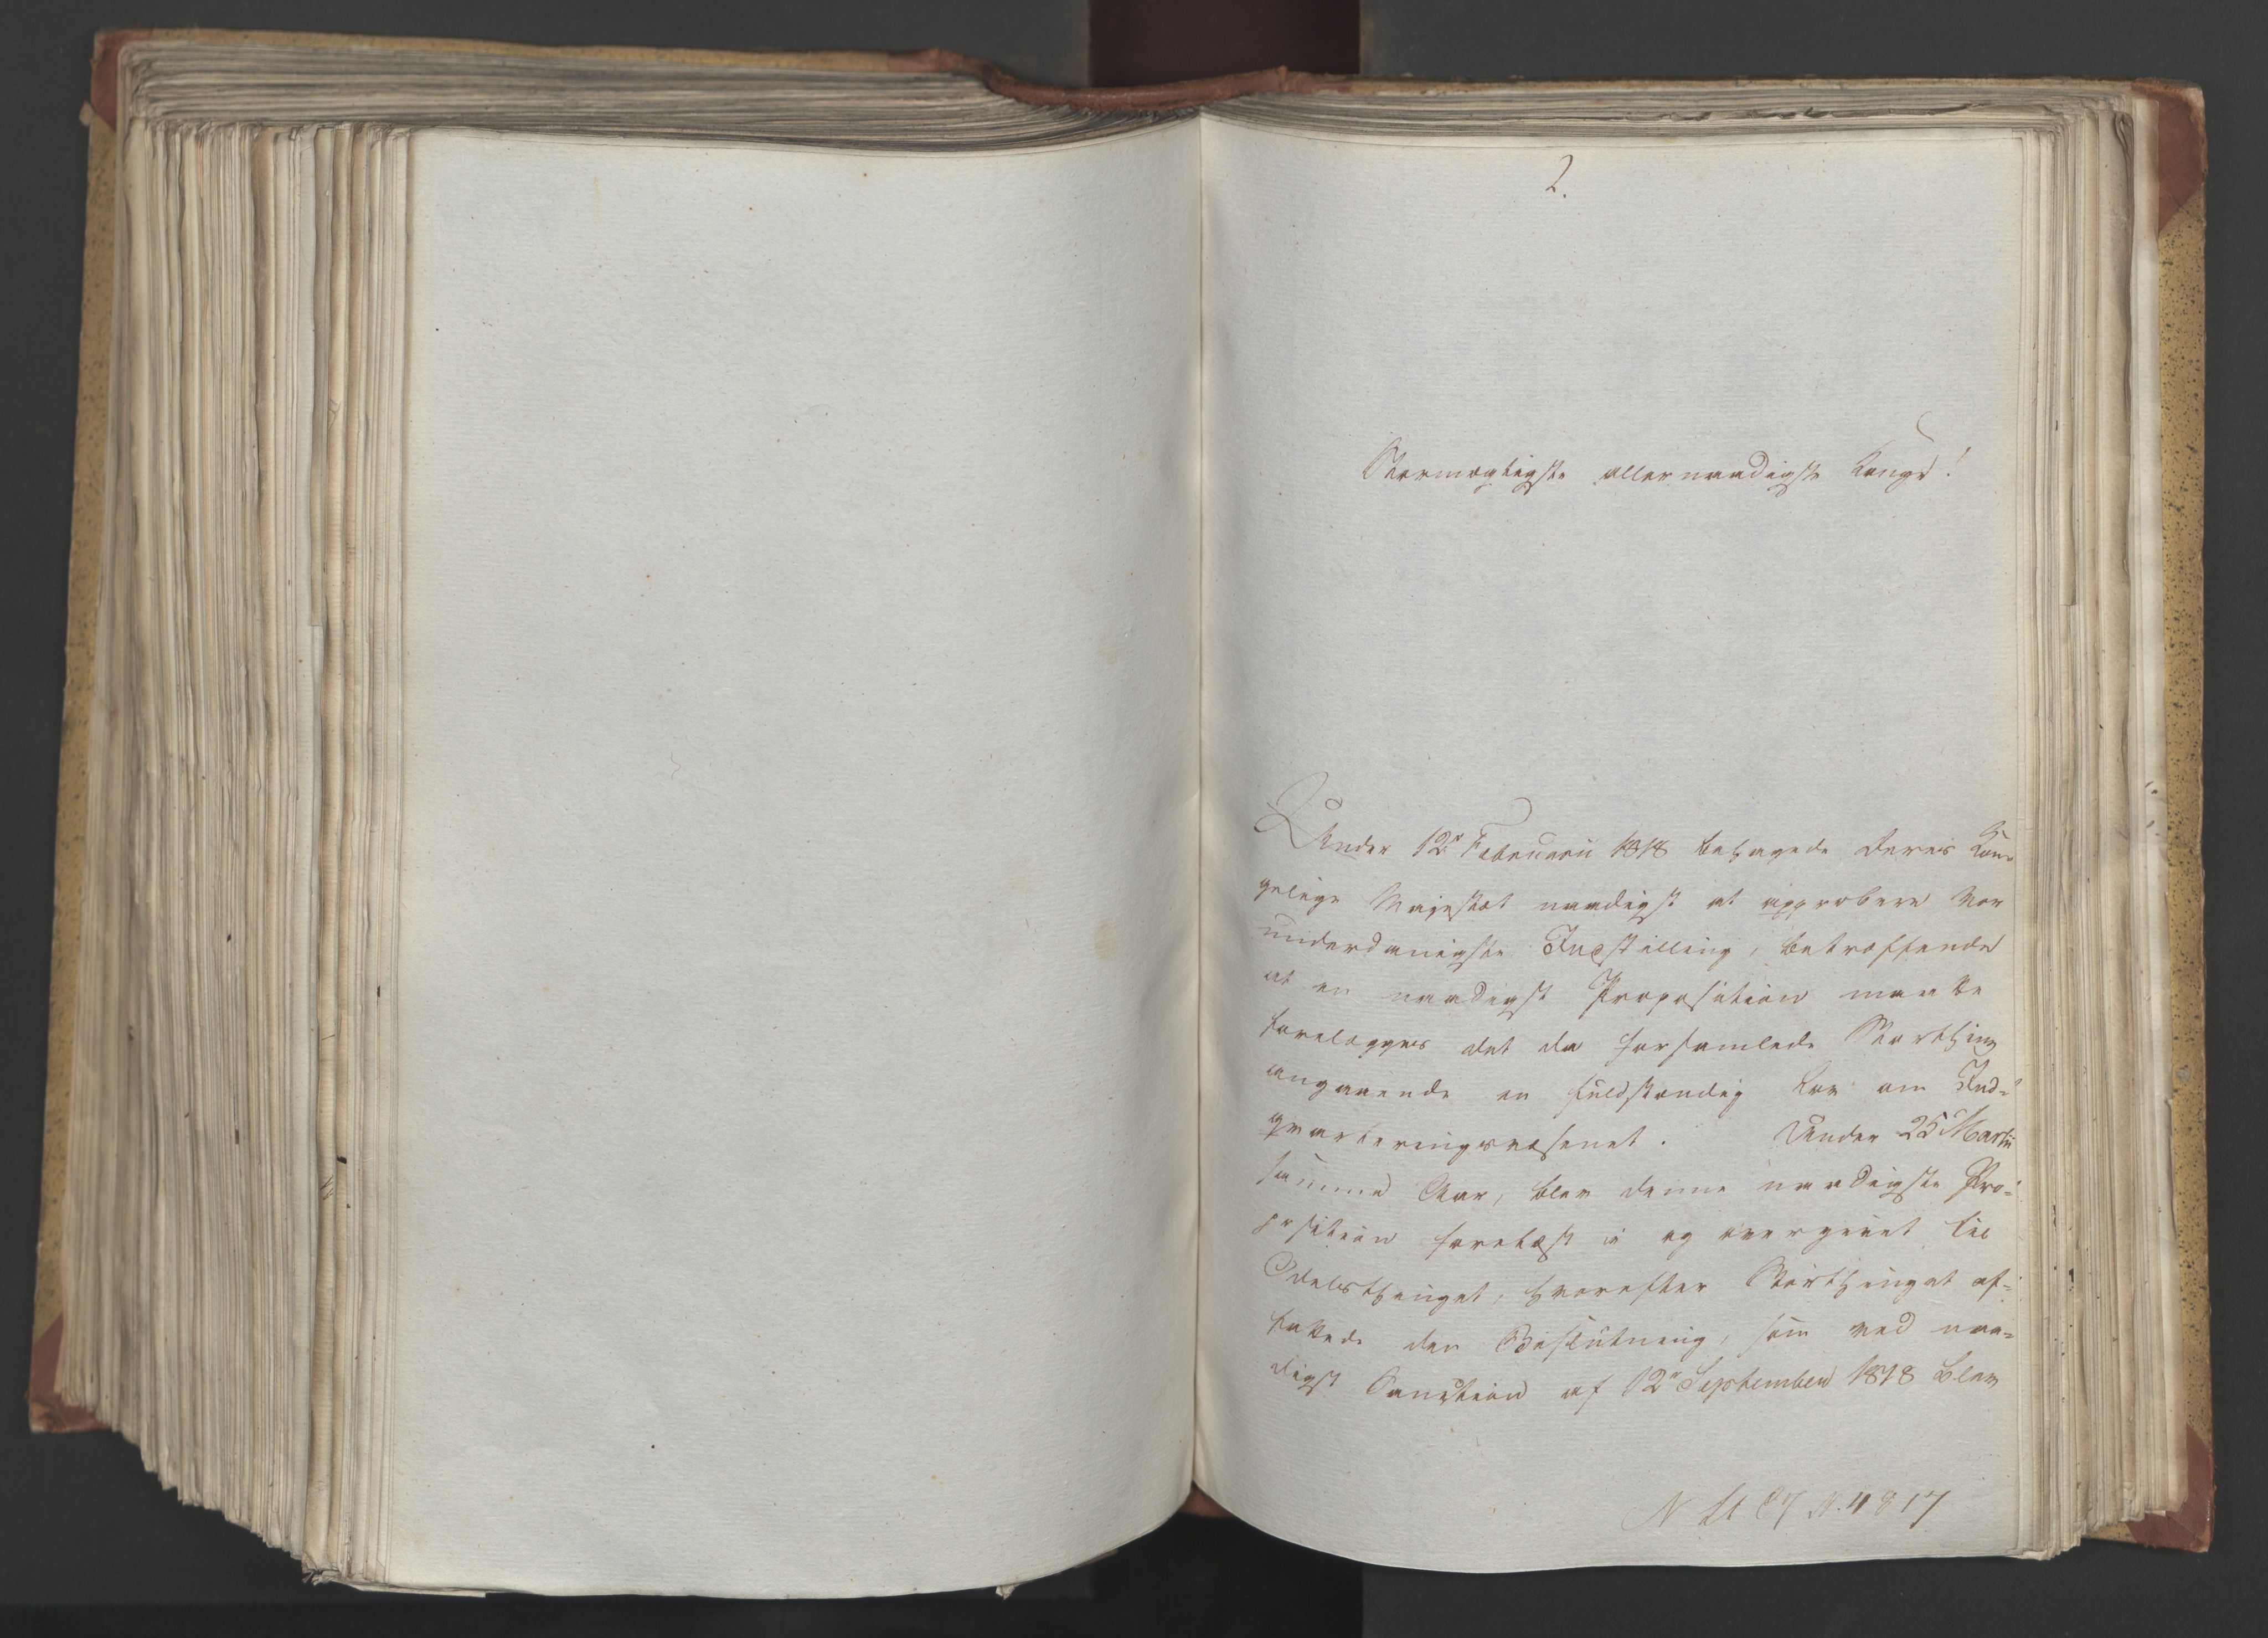 2.
Stormægtigste allernaadigste Konge!
Under 12te Februarii 1818 behagede Deres Kon-
gelige Majestæt naadigst at approbere vor
underdanigste Indstilling, betræffende
at en naadigst Proposition maatte
forelægges det da forsamlede Storthing
angaaende en fuldstændig Lov om Ind-
qvarteringsvæsenet. Under 25 Martii
samme Aar, blev denne naadigste Pro-
position forelæst i og overgivet til
Odelsthinget, hvorefter Storthinget af-
fattede den Beslutning, som ved naa-
digst Sanction af 12te September 1818 blev